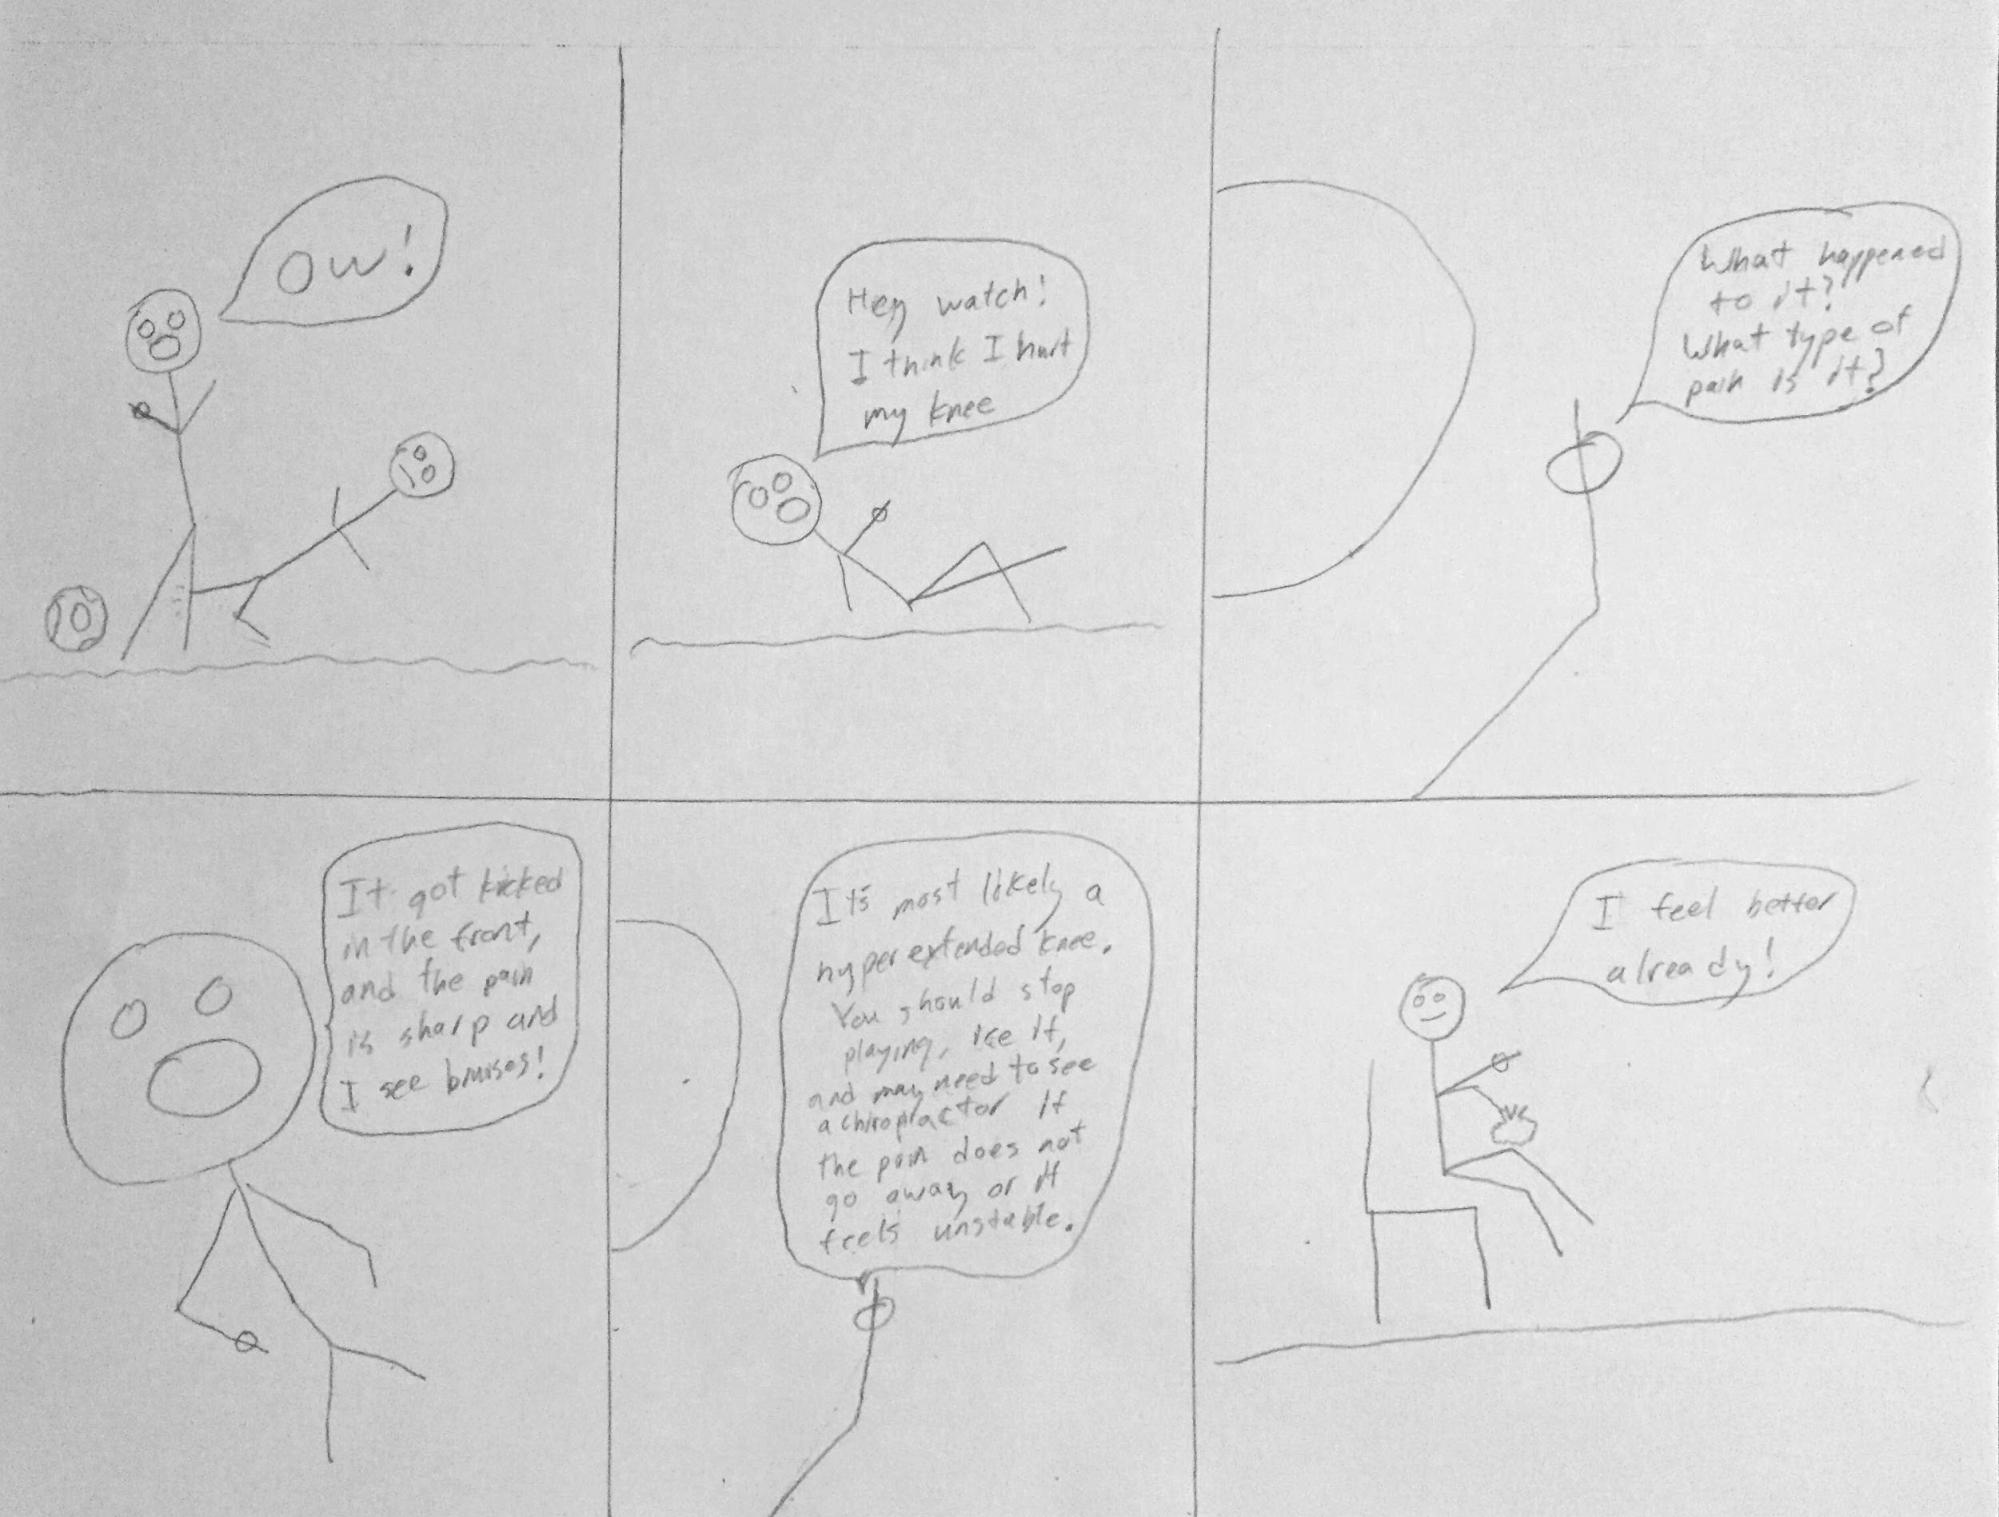 OW!
Hey watch!
I think I hurt
my knee
What happened
to it?
What type of
pain is it?
It got kicked
in the front,
and the pain
is sharp and
I see bruises!
It's most likely a
hyper extended knee.
You should stop
playing, ice it,
and may need to see
a chiropractor if
the pain does not
go away or it
feels unstable.
I feel better
already!